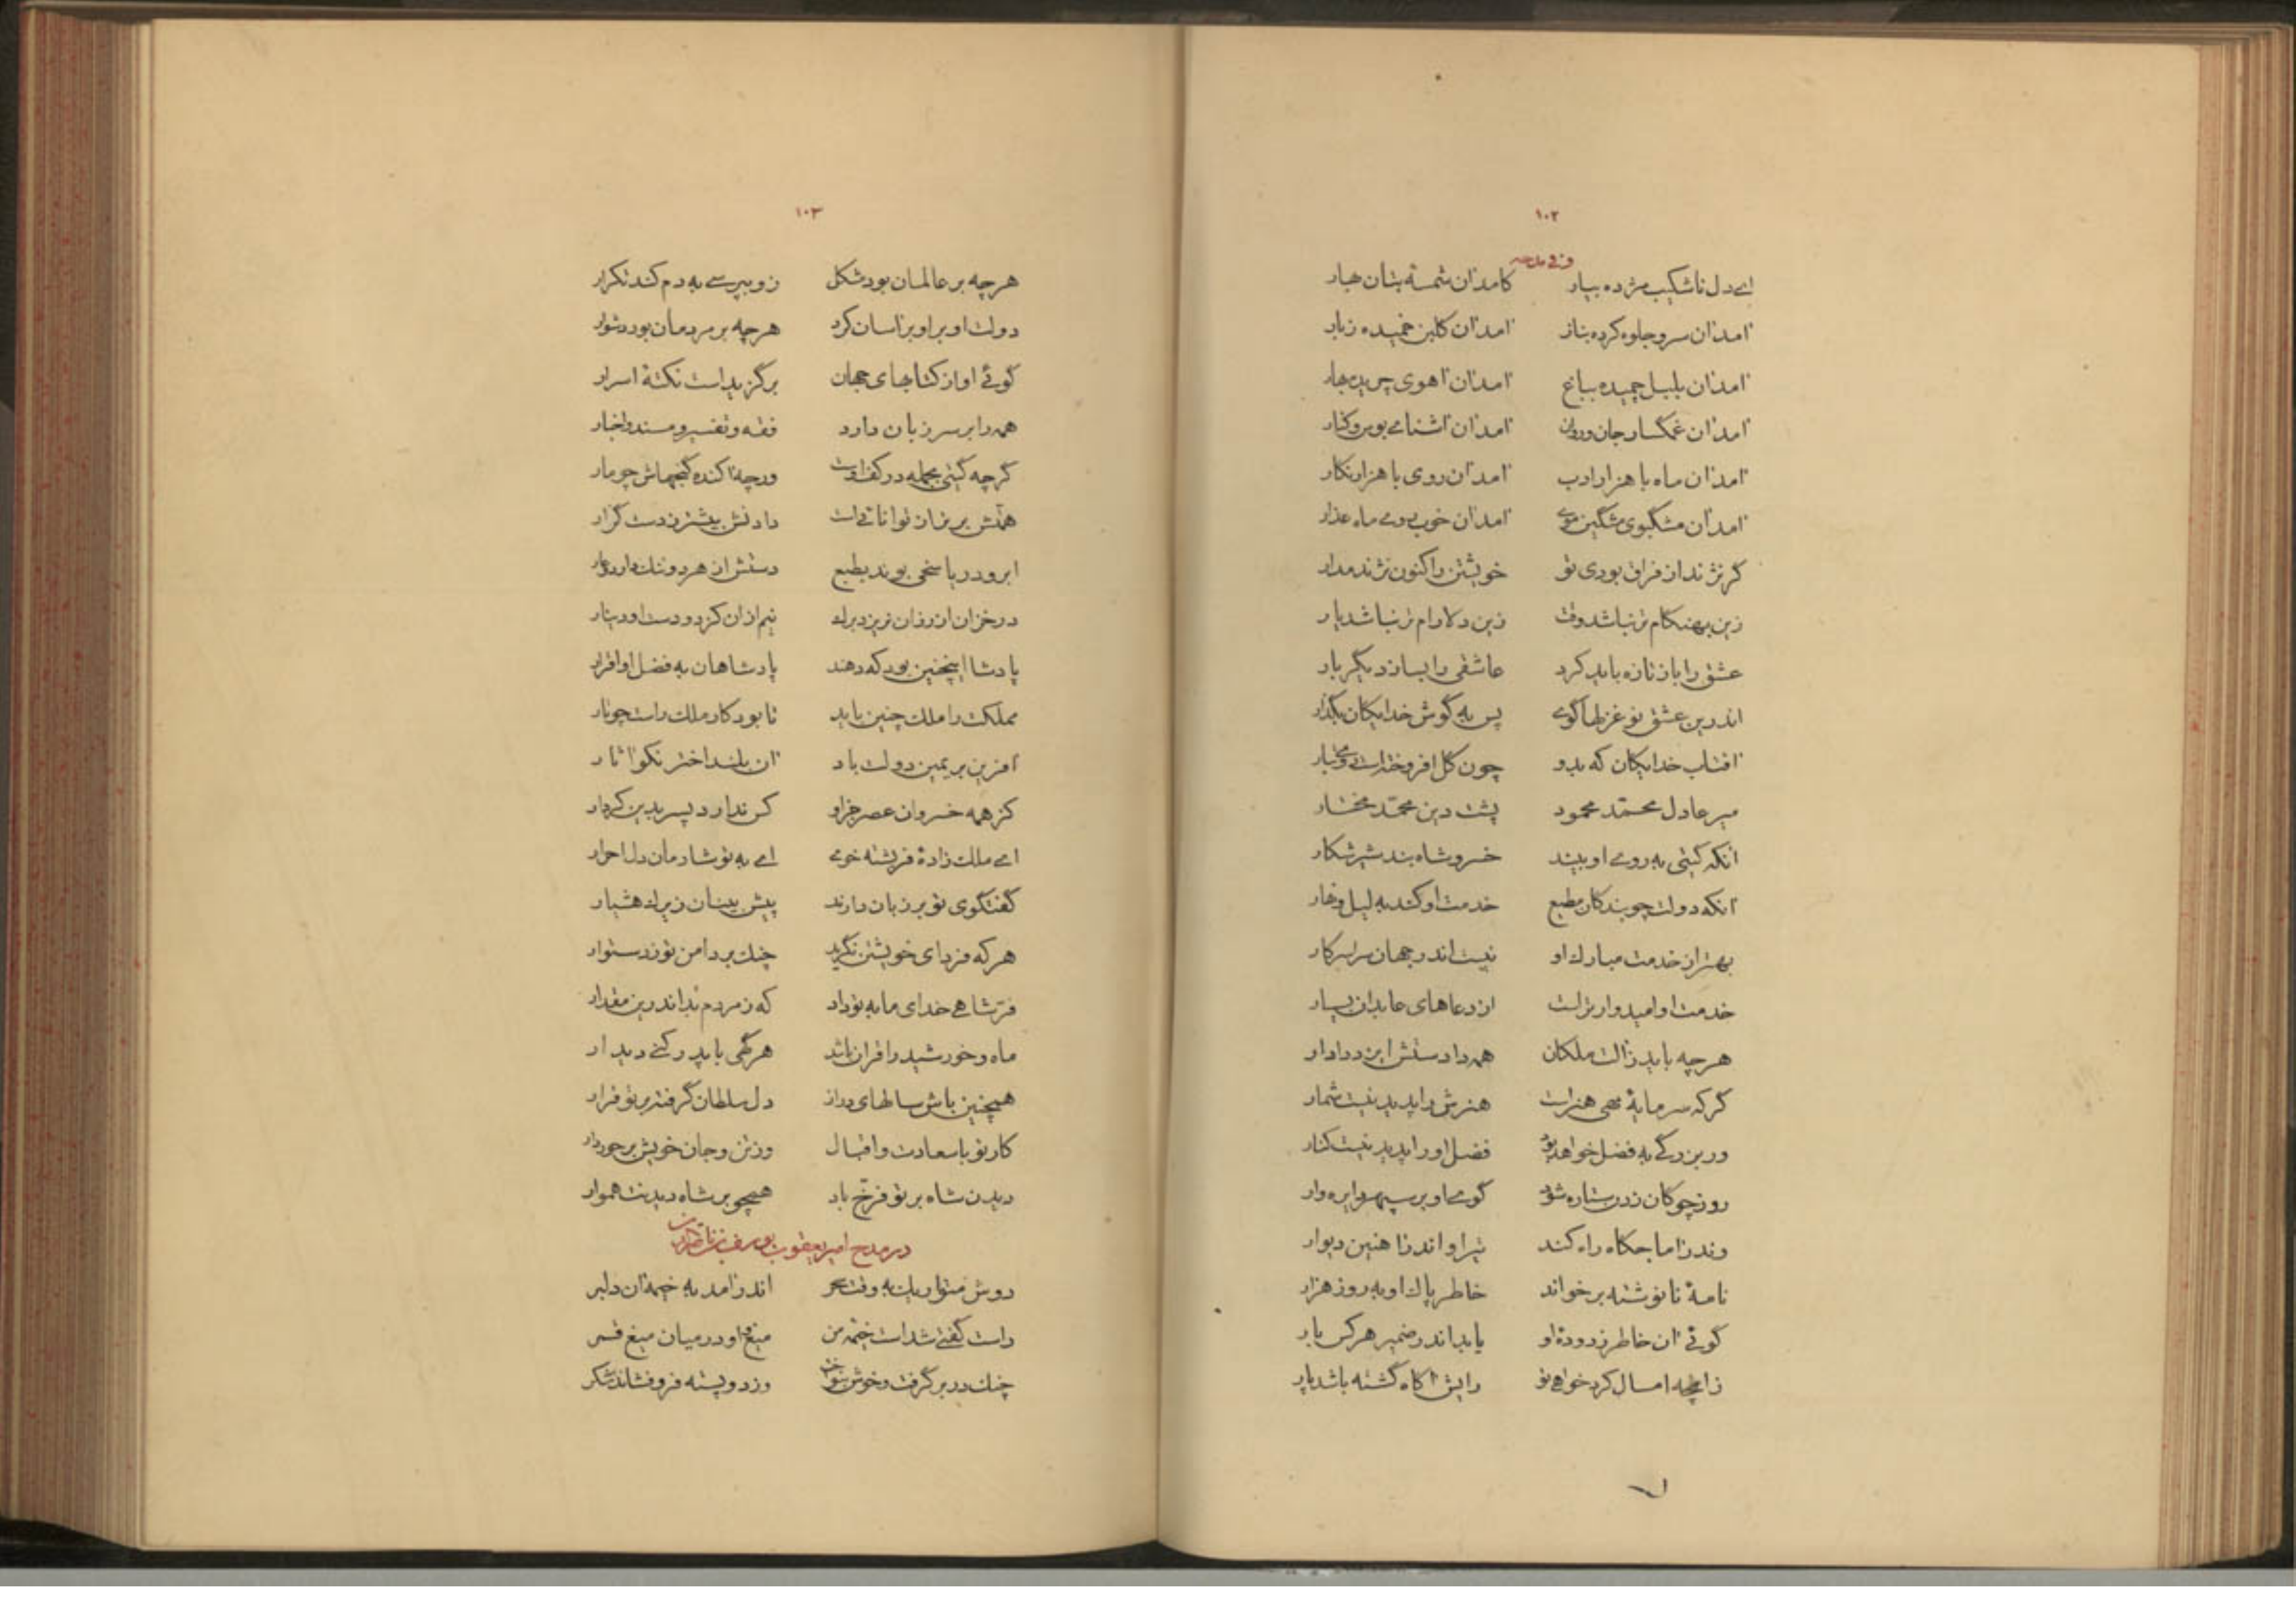 ۱۰۲
وله
ای دل ناشکیب مژده بیار کامد ان شمسهٔ بتان بهار
آمد آن سرو جلوه کرده بناز آمد آن کلبن خمیده ز بار
آمد آن بلبل چمیده بباغ آمد آن آهوی چریده بهار
آمد آن غمگسار جان و روان آمد آن آشنای بوس و کنار
آمد آن ماه با هزار ادب آمد آن روی با هزار نکار
آمد آن مشگبوی مشگین موی آمد آن خوبروی ماه عذار
گر نژند از فراق بودی تو خویشتن را کنون نژند مدار
زین بهنکام تر نباشد وقت زین دلارام تر نباشد یار
عشق را باز تازه باید کرد عاشقی را بساز دیگر بار
اندرین عشق نو غزلها گوی پس به گوش خدایکان بگذار
آفتاب خدایکان که بدو چون کل افروخته است
میر عادل محمّد محمود پشت دین محمّد مختار
انکه گیتی به روی او بیند خسرو شاه بند شیر شکار
آنکه دولت چو بندکان مطیع خدمت او کند به لیل و نهار
بهتر از خدمت مبارک او نیست اندر جهان سراسر کار
خدمت او امیدوارتر است از دعاهای عابدان بسیار
هرچه باید ز آلت ملکان همه دادستش ایزد دادار
گر که سرمایهٔ مهی هنر است هنرش را پدید نیست شمار
ور بزرگی به فضل خواهد بود فضل او را پدید نیست کنار
روز چوکان زدن ستاره شود گوی او بر سپهر دایره وار
وندر آماجکاه راه کند تیر او اندر آهنین دیوار
نامهٔ نانوشته برخواند خاطر پاک او به روز هزار
گوئی آن خاطر زدودهٔ او یابد اندر ضمیر هر کس بار
زانچه امسال کرد خواهی تو رایش آکاه گشته باشد پار
۱۰۳
هرچه بر عالمان بود مشکل زو بپرسی به دم کند تکرار
دولت او بر او بر آسان کرد هرچه بر مردمان بود دشوار
گوئی او از کتابهای جهان برگزیداست نکتهٔ اسرار
همه را بر سر زبان دارد فقه و تفسیر و مسند و اخبار
گرچه گیتی بجمله در کف اوست ورچه آکنده گنجهاش چو مار
همّتش برتر از توانائی است دادنش بیشتر ز دست گزار
ابر و دریا سخی بوند بطبع دستش از هر دو ننک دارد و عار
در خزان از رزان نریزد برک نیم از ان کز دو دست او دینار
پادشا اینچنین بود که دهند پادشاهان به فضل او اقرار
مملکت را ملک چنین باید تا بود کار ملک راست چو تار
آفرین بر یمین دولت باد آن بلند اختر نکو آثار
کز همه خسروان عصر جز او کس ندارد پسر بدین کردار
ای ملک زادهٔ فریشته خوی ای به تو شادمان دل احرار
گفتگوی تو بر زبان دارند پیش بینان زیرک هشیار
هر که فردای خویشتن نگرید چنک بر دامن تو زد ستوار
فرّ شاهی خدای ما به تو داد که ز مردم تو اند رین مقدار
ماه و خورشید را قران باشد هر گهی با پدر کنی دیدار
همچنین باش سالهای دراز دل سلطان گرفته بر تو قرار
کار تو با سعادت و اقبال وز تن و جان خویش برخوردار
دیدن شاه بر تو فرّخ باد همچو بر شاه دیدنت هموار
در مدح امیر یعقوب یوسف بن ناصر الدین
دوش متواریک به وقت سحر اندر آمد به خیمه آن دلبر
راست گفتی شداست خیمهٔ من میغ و او در میان میغ قمر
چنک در بر گرفت و خوش بنواخت وز دو پسته فرو فشاند شکر